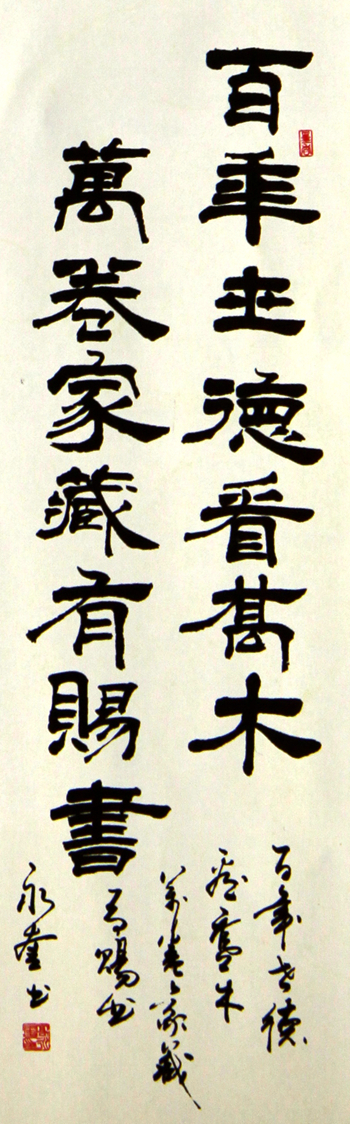 百年世德看喬木
萬卷家藏有賜書
百年世德
看喬木
萬卷家藏
有賜书
永奎书